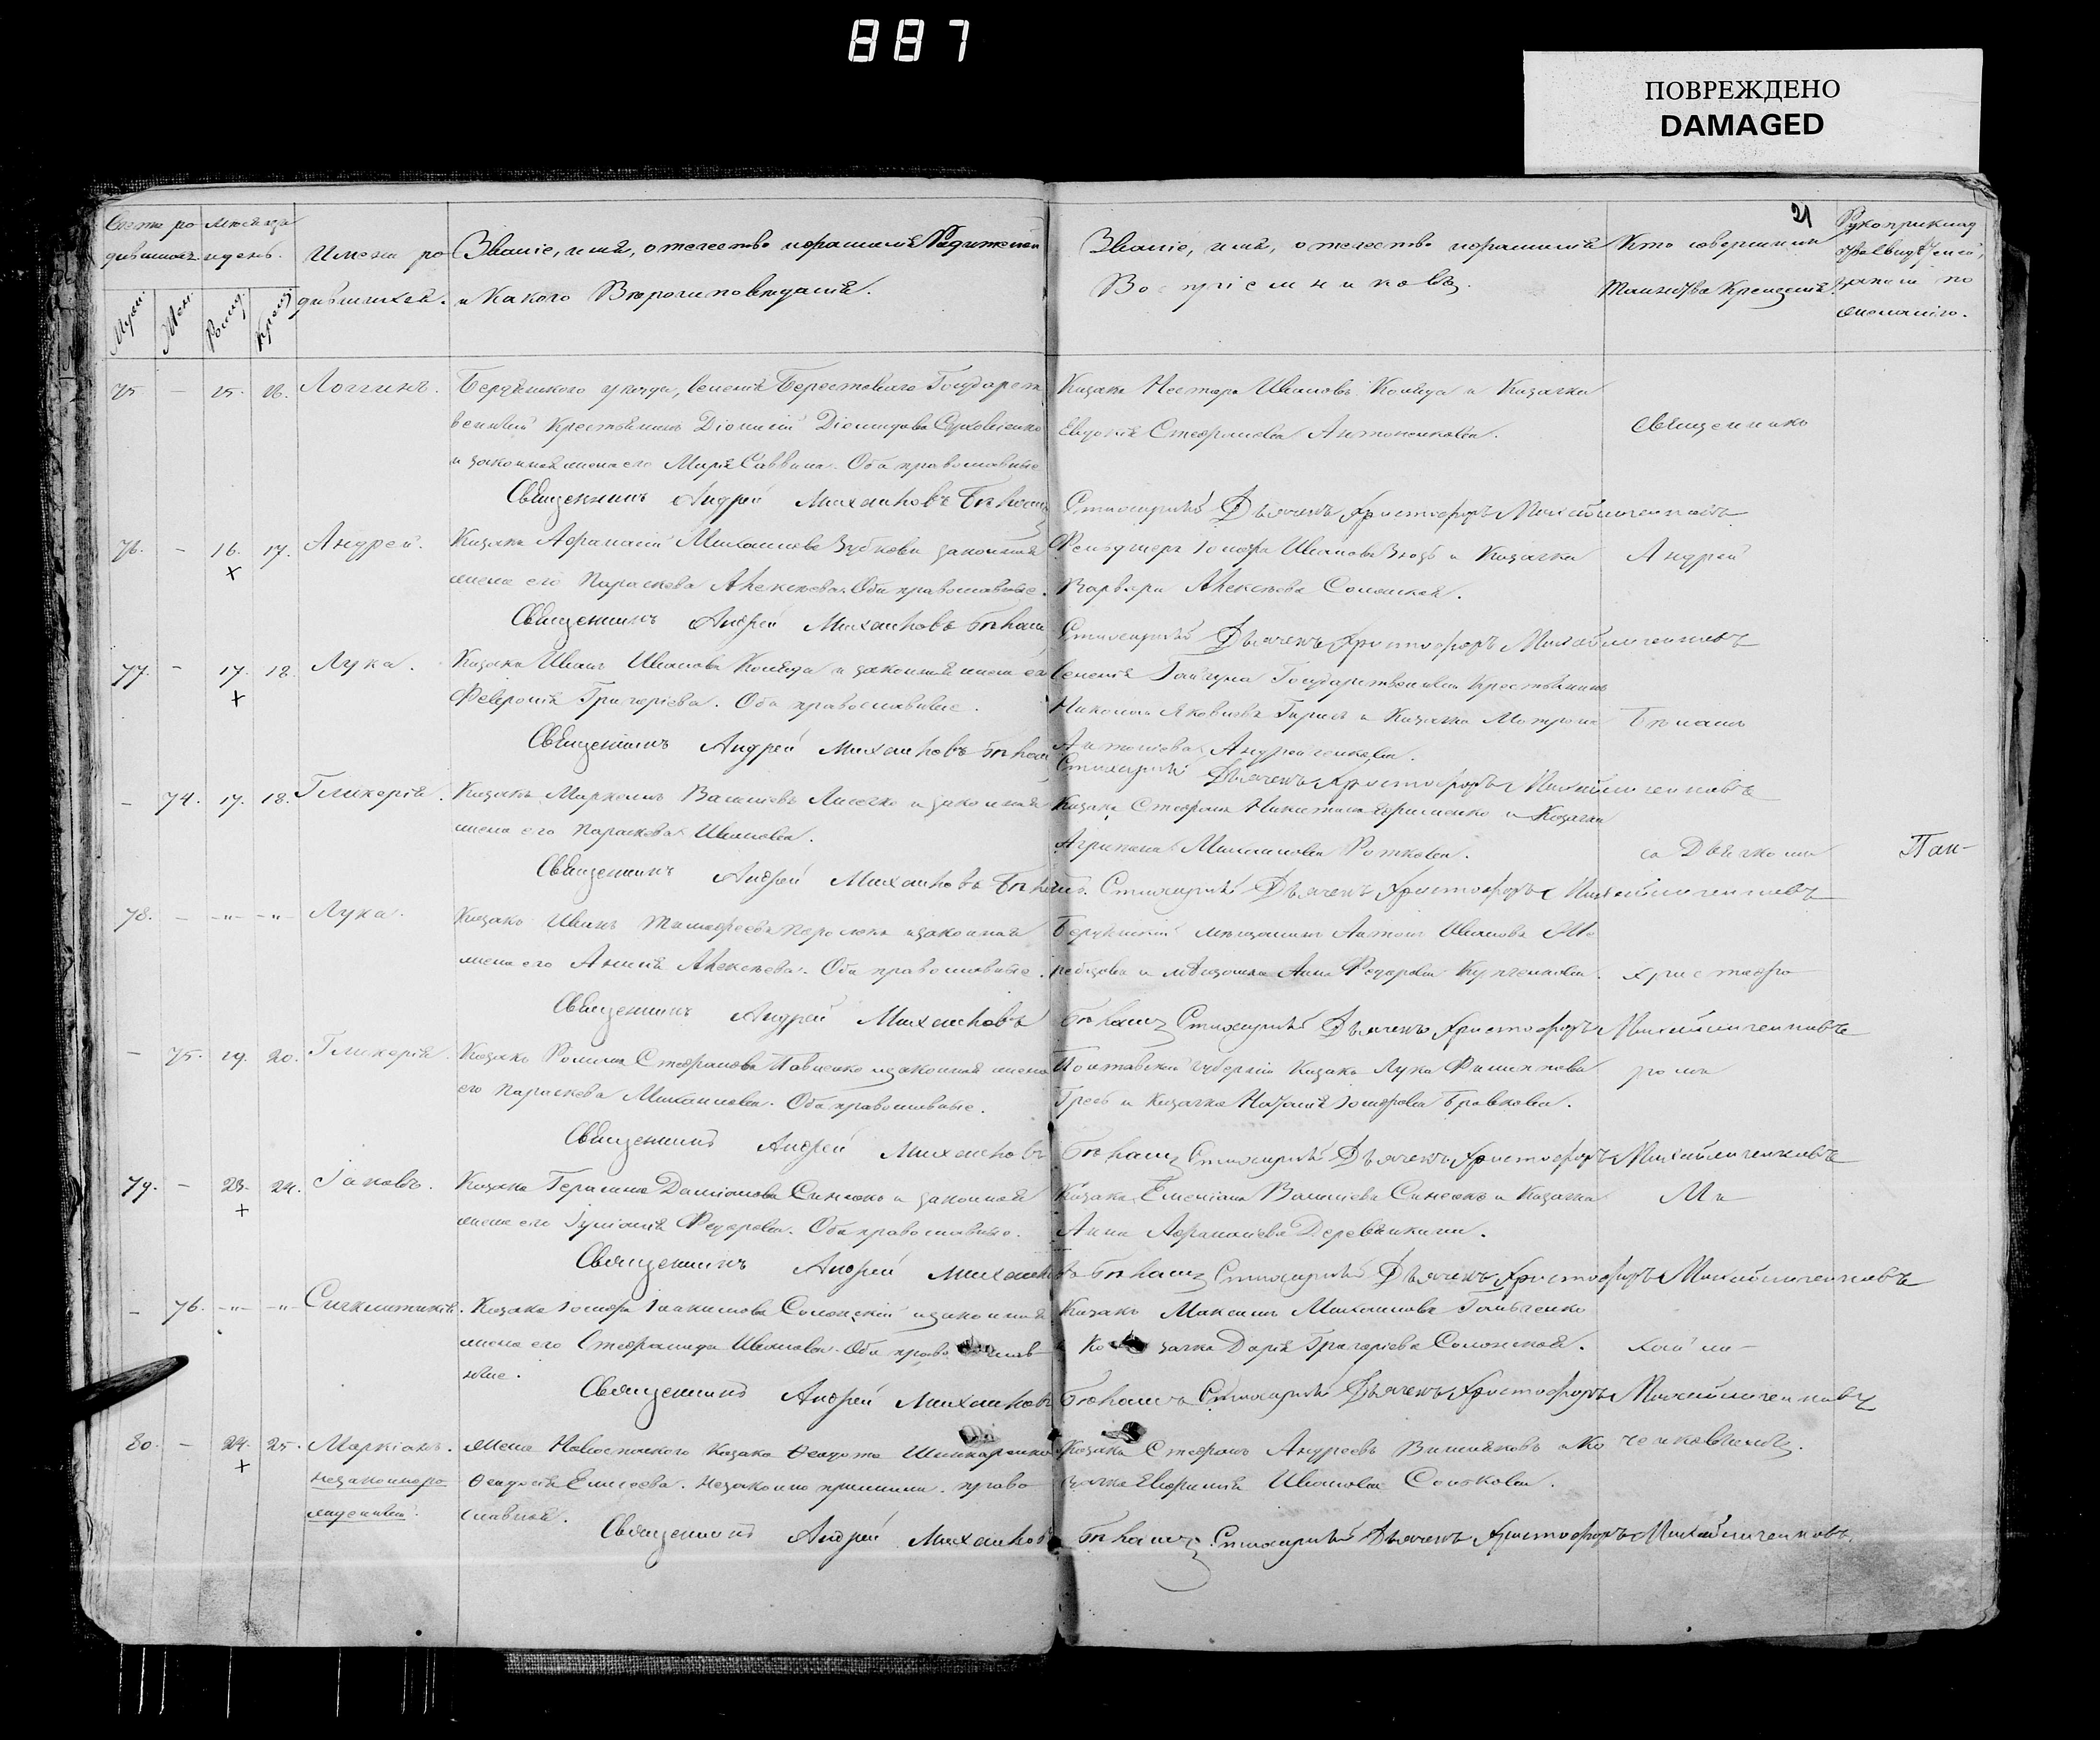 887
ПОВРЕЖДЕНО
DAMAGED
21
Счетъ ро
дившихся
Мѣсяцъ
и день.
Муж.
Жен.
Рожд.
Крещ.
Имена ро
дившихся.
Званіе, имя, отечество и фамилія Родителей
и Какого Вѣроисповѣданія.
Званіе, имя, отечество и фамилія
Воспріемниковъ.
Кто совершилъ
таинство Крещенія.
Рукоприклад
ство свидѣтелей
записи по
желанію.
75. - 15. 16. Логгинъ.
Бердянскаго уѣзда, селенія Берестоваго Государст
венный Крестьянинъ Діонисій Діомидовъ
и законная жена его Марія Саввина. Оба православные
Казакъ Несторъ Ивановъ Коляда и Казачка
Евдокія Стефанова Антоненкова.
Священникъ
Священникъ Андрей Михаиловъ
Стихарный Дьячекъ Христофоръ Михайличенковъ
76. - 16. 17. Андрей.
Казакъ Афанасій Михаиловъ Зубковъ законная
жена его Параскева Алексѣева. Оба православные.
Фельдшеръ Іосифъ Ивановъ и Казачка
Варвара Алексѣева Солонская.
Андрей
Священникъ Андрей Михаиловъ
Стихарный Дьячекъ Христофоръ Михайличенковъ
77. - 17. 18. Лука.
Казакъ Иванъ Ивановъ Коляда и законная жена его
Февронія Григоріева. Оба православные.
селенія Гайчула Государственный Крестьянинъ
Николай Яковлевъ и Казачка Матрона
Антоніева Андрейченкова.
Священникъ Андрей Михаиловъ
Стихарный Дьячекъ Христофоръ Михайличенковъ
- 74. 17. 18. Гликерія.
Казакъ Маркіанъ Василіевъ Лисечко и законная
жена его Параскева Иванова.
Казакъ Стефанъ Никитинъ и Козачка
Агрипина Михаилова Роткова.
съ Дьячкомъ
Пан-
Священникъ Андрей Михаиловъ
Стихарный Дьячекъ Христофоръ Михайличенковъ
78. - -"- -"- Лука.
Казакъ Иванъ Тимофеевъ и законная
жена его Анна Алексѣева. Оба православные.
Бердянскій мѣщанинъ Антонъ Ивановъ
и мѣщанка Анна Федорова
Христофо
Священникъ Андрей Михаиловъ
Стихарный Дьячекъ Христофоръ Михайличенковъ
- 75. 19. 20. Гликерія.
Казакъ Романъ Стефановъ Павленко и законная жена
его Параскева Михаилова. Оба православные.
Полтавской губерніи Казакъ Лука Филипповъ
Гресь и Казачка Наталія Іосифова Бравкова.
ромъ
Священникъ Андрей Михаиловъ
Стихарный Дьячекъ Христофоръ Михайличенковъ
79. - 23. 24. Іаковъ.
Казакъ Герасимъ Даміановъ Синеоко и законная
жена его Іуліанія Федорова. Оба православные.
Казакъ Емеліанъ Василіевъ Синеоко и Казачка
Анна Афанасіева Деревянкина.
Ми
Священникъ Андрей Михаиловъ
Стихарный Дьячекъ Христофоръ Михайличенковъ
- 76. -"- -"- Синклитикія.
Казакъ Іосифъ Іоакимовъ Солонскій и законная
жена его Стефанида Иванова. Оба православ
ные.
Казакъ Максимъ Михаиловъ Гальченко
и Ко зачка Дарія Григоріева Солонская.
хай ли-
Священникъ Андрей Михаиловъ
Стихарный Дьячекъ Христофоръ Михайличенковъ
80. - 24. 25. Маркіанъ.
незаконноро
жденный.
Жена Казака Феодота Шинкаренко
Феодосія Елисеева. незаконно прижила. право
славная.
Казакъ Стефанъ Андреевъ Вишняковъ и Ко
зачка Евфимія Иванова
ченковымъ.
Священникъ Андрей Михаиловъ
Стихарный Дьячекъ Христофоръ Михайличенковъ.